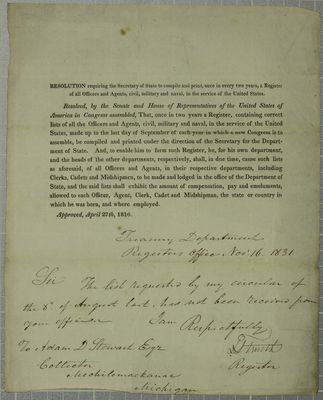 RESOLUTION requiring the Secretary of State to compile and print, once in every two years, a Register
of all Officers and Agents, civil, military and naval, in the service of the United States.
Resolved, by the Senate and House of Representatives of the United States of
America in Congress assembled, That, once in two years a Register, containing correct
lists of all the Officers and Agents, civil, military and naval, in the service of the United
States, made up to the last day of September of each year in which a new Congress is to
assemble, be compiled and printed under the direction of the Secretary for the Depart-
ment of State. And, to enable him to form such Register, he, for his own department,
and the heads of the other departments, respectively, shall, in due time, cause such lists
as aforesaid, of all Officers and Agents, in their respective departments, including
Clerks, Cadets and Midshipmen, to be made and lodged in the office of the Department of
State, and the said lists shall exhibit the amount of compensation, pay and emoluments,
allowed to each Officer, Agent, Clerk, Cadet and Midshipman, the state or country in
which he was born, and where employed.
Approved, April 27th, 1816.
Treasury Department
Registers Office Nov. 16. 1831
Sir
The list requested by my circular of
the 8th of August last, has not been received from
your office.
I am Respectfully
To Adam D Stewart Esqr
T. Smith
Collector
Register
Michilimackinac
Michigan